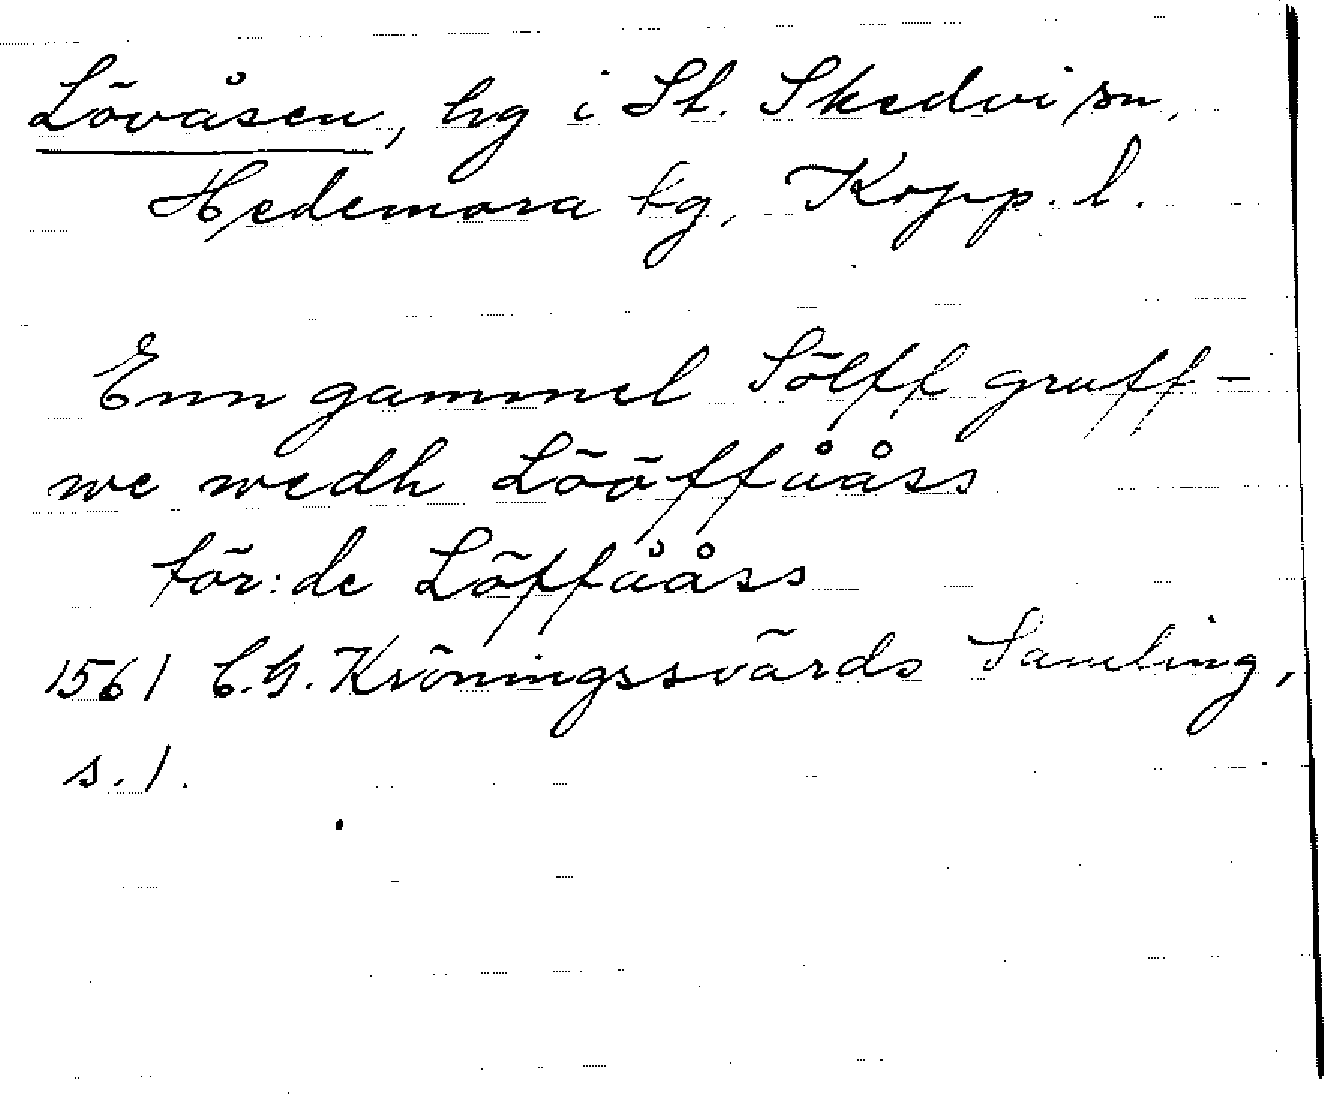 Lövåsen, hg i St. Skedvi sn,
Hedemora tg, Kopp. l.
Enn gammel Sölff gruff-
we wedh Lööffååss
för:de Löffååss
1561 C.G. Kröningssvärds Samling,
s. 1.